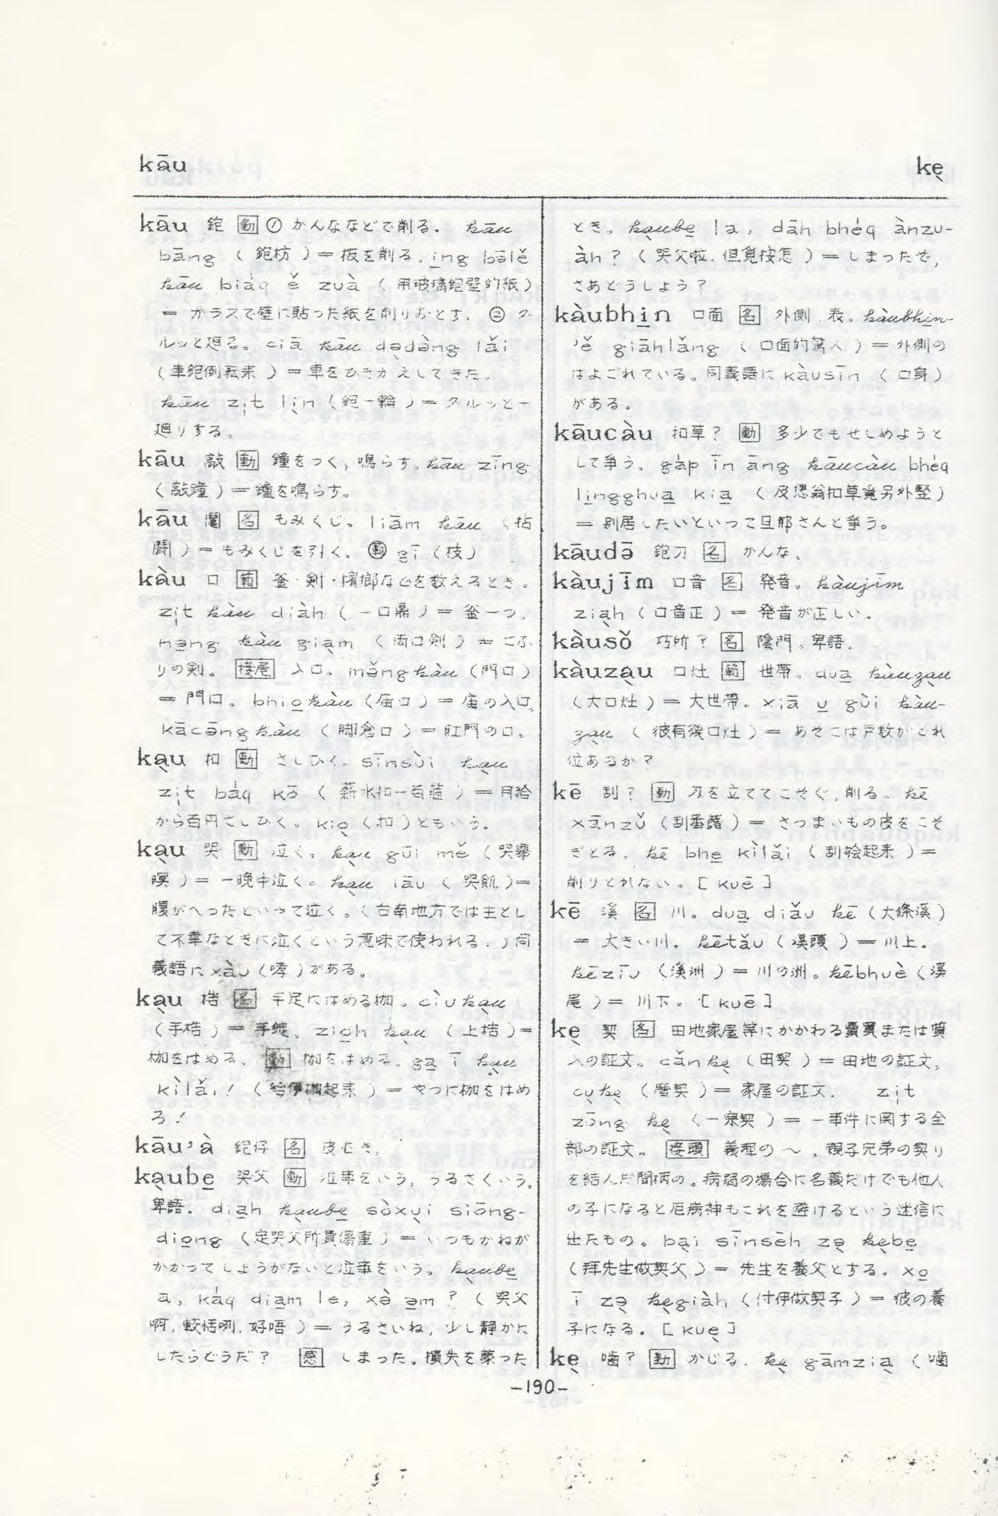 kāu
kẹ
kāu 鉋 動 ① かんななどで削る. kāu
bāng ( 鉋枋 ) = 板を削る. ing bōlě
kāu biáq ě zuà ( 用玻璃鉋壁的紙 )
= ガラスで壁に貼った紙を削りおとす. ② ク
ルッと廻る. ciā kāu dədàng lǎi
( 車鉋倒転来 ) = 車をひきかえしてきた.
kāu zi̍t lìn ( 鉋一輪 ) = クルッと一
廻りする。
kāu 敲 動 鐘をつく, 鳴らす. kāu zīng
( 敲鐘 ) = 鐘を鳴らす。
kāu 鬮 名 もみくじ。 liām kāu ( 拈
鬮 ) = もみくじを引く. gī ( 枝 )
kàu 口 範 釜・剣・檳榔などを数えるとき.
zi̍t kàu diàh ( 一口鼎 ) = 釜一つ.
nə̱ng kàu giạm ( 両口剣 ) = 二ふ
りの剣。 接尾 入口. mə̌ngkàu ( 門口 )
= 門口。 bhiọkàu ( 庙口 ) = 庙の入口.
kācāngkàu ( 脚倉口 ) = 肛門の口.
kạu 扣 動 さしひく. sīnsùi kạu
zi̍t báq kō ( 薪水扣一百箍 ) = 月給
から百円さしひく. kiọ ( 扣 ) ともいう.
kạu 哭 動 泣く. kạu gūi mě ( 哭舉
暝 ) = 一晩中泣く。 kạu iāu ( 哭飢 ) =
腹がへったといって泣く。( 台南地方では主とし
て不幸なときに泣くという意味で使われる. ) 同
義語に xàu ( 哮 ) がある.
kạu 梏 名 手足にはめる枷. ciùkạu
( 手梏 ) = 手錠. zioh kạu ( 上梏 ) =
枷をはめる. 動 枷をはめる. gạ ī kạu
kìlǎi! ( 給伊梏起来 ) = やつに枷をはめ
ろ!
kāu'à 鉋仔 名 皮むき.
kạubẹ 哭父 動 泣事をいう, うるさくいう.
卑語. diạh kạubẹ sòxụi siōng-
diọng ( 定哭父所費傷重 ) = いつもかねが
かかってしようがないと泣事をいう。 kạubẹ
a, káq diạm le, xə̀ ạm? ( 哭父
啊, 較恬咧, 好唔 ) = うるさいね, 少し静かに
したらどうだ? 感 しまった. 損失を蒙った
とき. kạubẹ la, dāh bhéq ànzu-
àh? ( 哭父啦, 但覓按怎 ) = しまったぞ,
さあどうしよう?
kàubhịn 口面 名 外側, 表. kàubhịn-
'ě giānlǎng ( 口面的 人 ) = 外側の
はよごれている。同義語に kàusīn ( 口身 )
がある。
kāucàu 扣草? 動 多少でもせしめようと
して争う. gáp īn āng kāucàu bhéq
lingghuạ kiạ ( 及 翁扣草覓另外豎 )
= 別居したいといって旦那さんと争う。
kāudə̄ 鉋刀 名 かんな.
kàujīm 口音 名 発音. kàujīm
ziạh ( 口音正 ) = 発音が正しい.
kàusǒ 巧所? 名 陰門. 卑語.
kàuzạu 口灶 範 世帯. duạ kàuzạu
( 大口灶 ) = 大世帯. xiā ụ gùi kàu-
zạu ( 彼有幾口灶 ) = あそこは戸数がどれ
位あるか?
kē 刮? 動 刃を立ててこそぐ, 削る. kē
xānzǔ ( 刮番藷 ) = さつまいもの皮をこそ
ぎとる. kē bhẹ kìlǎi ( 刮 起来 ) =
削りとれない. [ kuē ]
kē 溪 名 川. duạ diǎu kē ( 大條溪 )
= 大きい川. kētǎu ( 溪頭 ) = 川上.
kēziū ( 溪洲 ) = 川の洲。 kēbhuè ( 溪
尾 ) = 川下. [ kuē ]
kẹ 契 名 田地家屋等にかかわる賣買または質
入の証文. cǎnkẹ ( 田契 ) = 田地の証文.
cụkẹ ( 厝契 ) = 家屋の証文. zi̍t
zōng kẹ ( 一宗契 ) = 一事件に関する全
部の証文。 接頭 義理の ～, 親子兄弟の契り
を結んだ間柄の. 病弱の場合に名義だけでも他人
の子になると厄病神もこれを避けるという迷信に
出たもの. bại sīnsēh zə̣ kẹbẹ
( 拜先生做契父 ) = 先生を養父とする. xọ
ī zə̣ kẹgiàh ( 付伊做契子 ) = 彼の養
子になる. [ kuẹ ]
kẹ 噛? 動 かじる. kẹ gāmziạ ( 噛
-190-